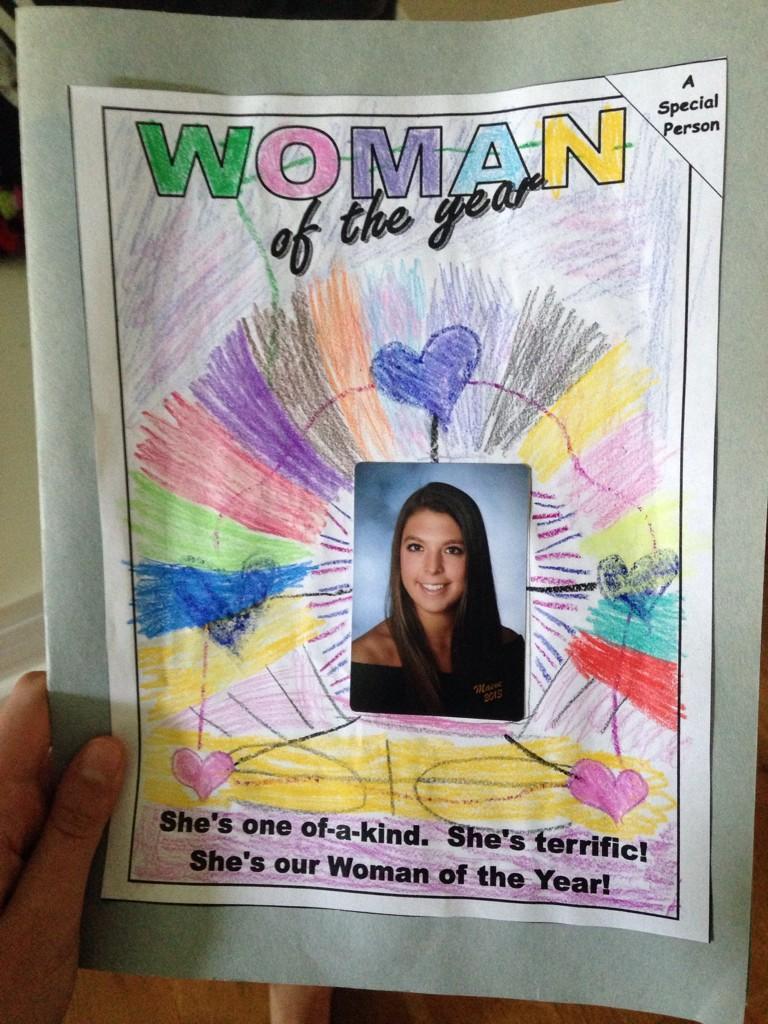 A
Special
Person
WOMAN
of the year
2013
She's one of-a-kind. She's terrific!
She's our Woman of the Year!